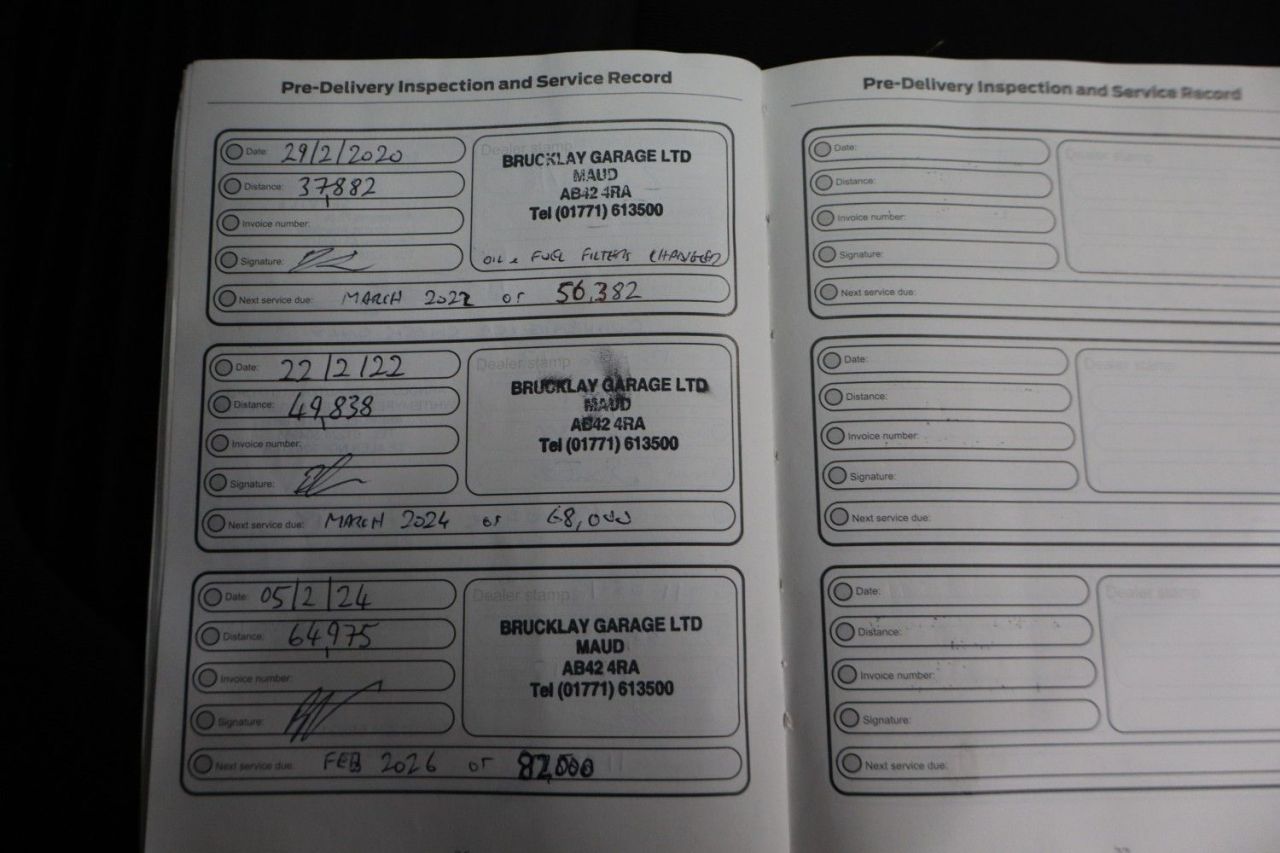 Pre-Delivery Inspection and Service Record
Date: 29/2/2020
Distance: 37,882
Invoice number:
Signature:
Dealer stamp
BRUCKLAY GARAGE LTD
MAUD
AB42 4RA
Tel (01771) 613500
OIL & FUEL FILTERS CHANGED
Next service due: MARCH 2022 or 56,382
Date: 22/2/22
Distance: 49,838
Invoice number:
Signature:
Dealer stamp
BRUCKLAY GARAGE LTD
MAUD
AB42 4RA
Tel (01771) 613500
Next service due: MARCH 2024 or 68,000
Date: 05/2/24
Distance: 64,975
Invoice number:
Signature:
Dealer stamp
BRUCKLAY GARAGE LTD
MAUD
AB42 4RA
Tel (01771) 613500
Next service due: FEB 2026 or 82,000
Pre-Delivery Inspection and Service Record
Date:
Distance:
Invoice number:
Signature:
Dealer stamp
Next service due:
Date:
Distance:
Invoice number:
Signature:
Dealer stamp
Next service due:
Date:
Distance:
Invoice number:
Signature:
Dealer stamp
Next service due: